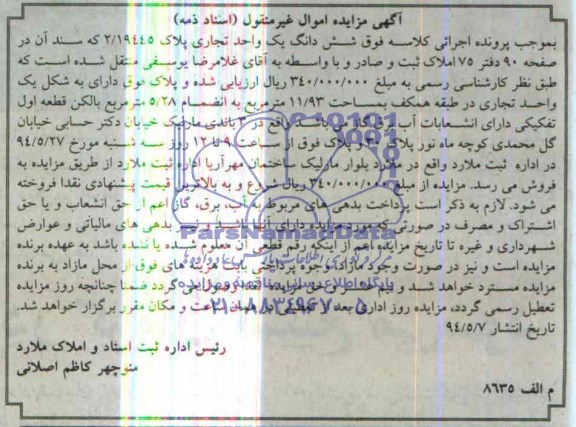 آگهی مزایده اموال غیرمنقول (اسناد ذمه)
بموجب پرونده اجرائی کلاسه فوق شش دانگ یک واحد تجاری پلاک ۲/۱۹۴۴۵ که سند آن در
صفحه ۹۰ دفتر ۷۵ املاک ثبت و صادر و با واسطه به آقای غلامرضا یوسفی منتقل شده است که
طبق نظر کارشناسی رسمی به مبلغ ۳۴۰/۰۰۰/۰۰۰ ریال ارزیابی شده و پلاک فوق دارای به شکل یک
واحد تجاری در طبقه همکف بمساحت ۱۱/۹۳ مترمربع به انضمام ۵/۲۸ مترمربع بالکن قطعه اول
تفکیکی دارای انشعابات آب و گاز می باشد واقع در باندی مارلیک خیابان دکتر حسابی خیابان
گل محمدی کوچه ماه نور پلاک فوق از ساعت ۹ تا ۱۲ روز سه شنبه مورخ ۹۴/۵/۲۷
در اداره ثبت ملارد واقع در ملارد بلوار مارلیک ساختمان مهرآریا اداره ثبت ملارد از طریق مزایده به
فروش می رسد. مزایده از مبلغ ۳۴۰/۰۰۰/۰۰۰ ریال شروع و به بالاترین قیمت پیشنهادی نقدا فروخته
می شود. لازم به ذکر است پرداخت بدهی های مربوط به آب، برق، گاز اعم از حق انشعاب و یا حق
اشتراک و مصرف در صورتی که مورد مزایده دارای آنها باشد و نیز بدهی های مالیاتی و عوارض
شهرداری و غیره تا تاریخ مزایده اعم از اینکه رقم قطعی آن معلوم شده یا نشده باشد به عهده برنده
مزایده است و نیز در صورت وجود مازاد وجوه پرداختی بابت هزینه های فوق از محل مازاد به برنده
مزایده مسترد خواهد شد و نیم عشر و حق مزایده نقدا وصول می گردد ضمنا چنانچه روز مزایده
تعطیل رسمی گردد، مزایده روز اداری بعد از تعطیلی در همان ساعت و مکان مقرر برگزار خواهد شد.
تاریخ انتشار ۹۴/۵/۷
رئیس اداره ثبت اسناد و املاک ملارد
منوچهر کاظم اصلانی
م الف ۸۶۳۵
ParsNamadData
پایگاه اطلاع رسانی مناقصه و مزایده
۰۲۱-۸۸۳۴۹۶۷۰-۵